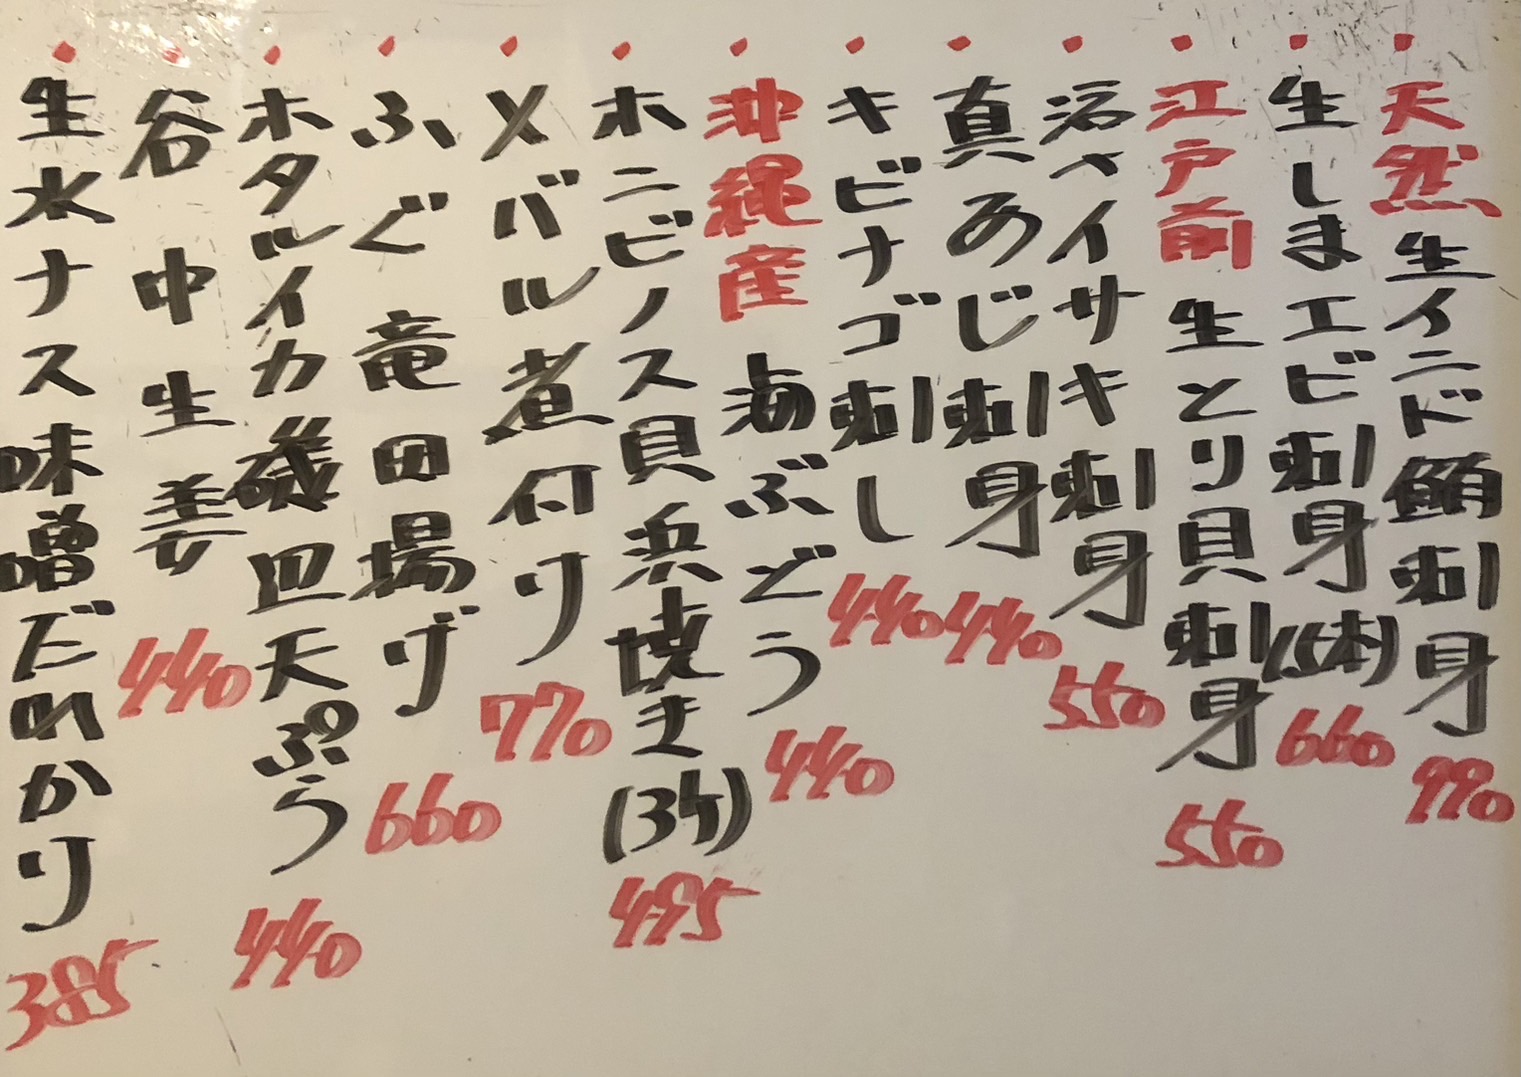 ・天然生インド鮪刺身 990
・生しまエビ刺身(5本) 660
・江戸前 生とり貝刺身 550
・活〆イサキ刺身 550
・真あじ刺身 440
・キビナゴ刺し 440
・沖縄産 海ぶどう 440
・ホンビノス貝浜焼き(3ケ) 495
・メバル煮付け 770
・ふぐ竜田揚げ 660
・ホタルイカ磯辺天ぷら 440
・谷中生姜 440
・生水ナス味噌だれかけ 385